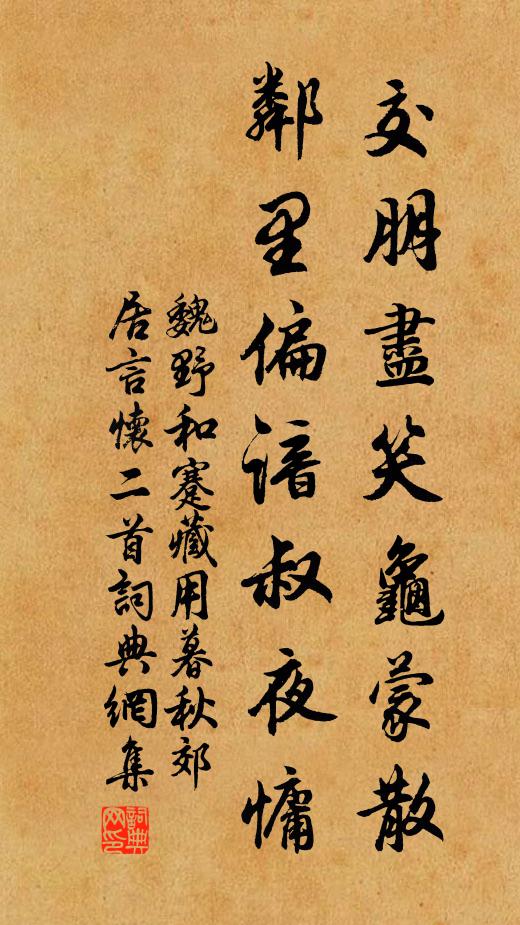 交朋盡笑龜蒙散
鄰里偏諳叔夜慵
魏野和蹇藏用暮秋郊
居言懷二首詞典網集
詞典网印